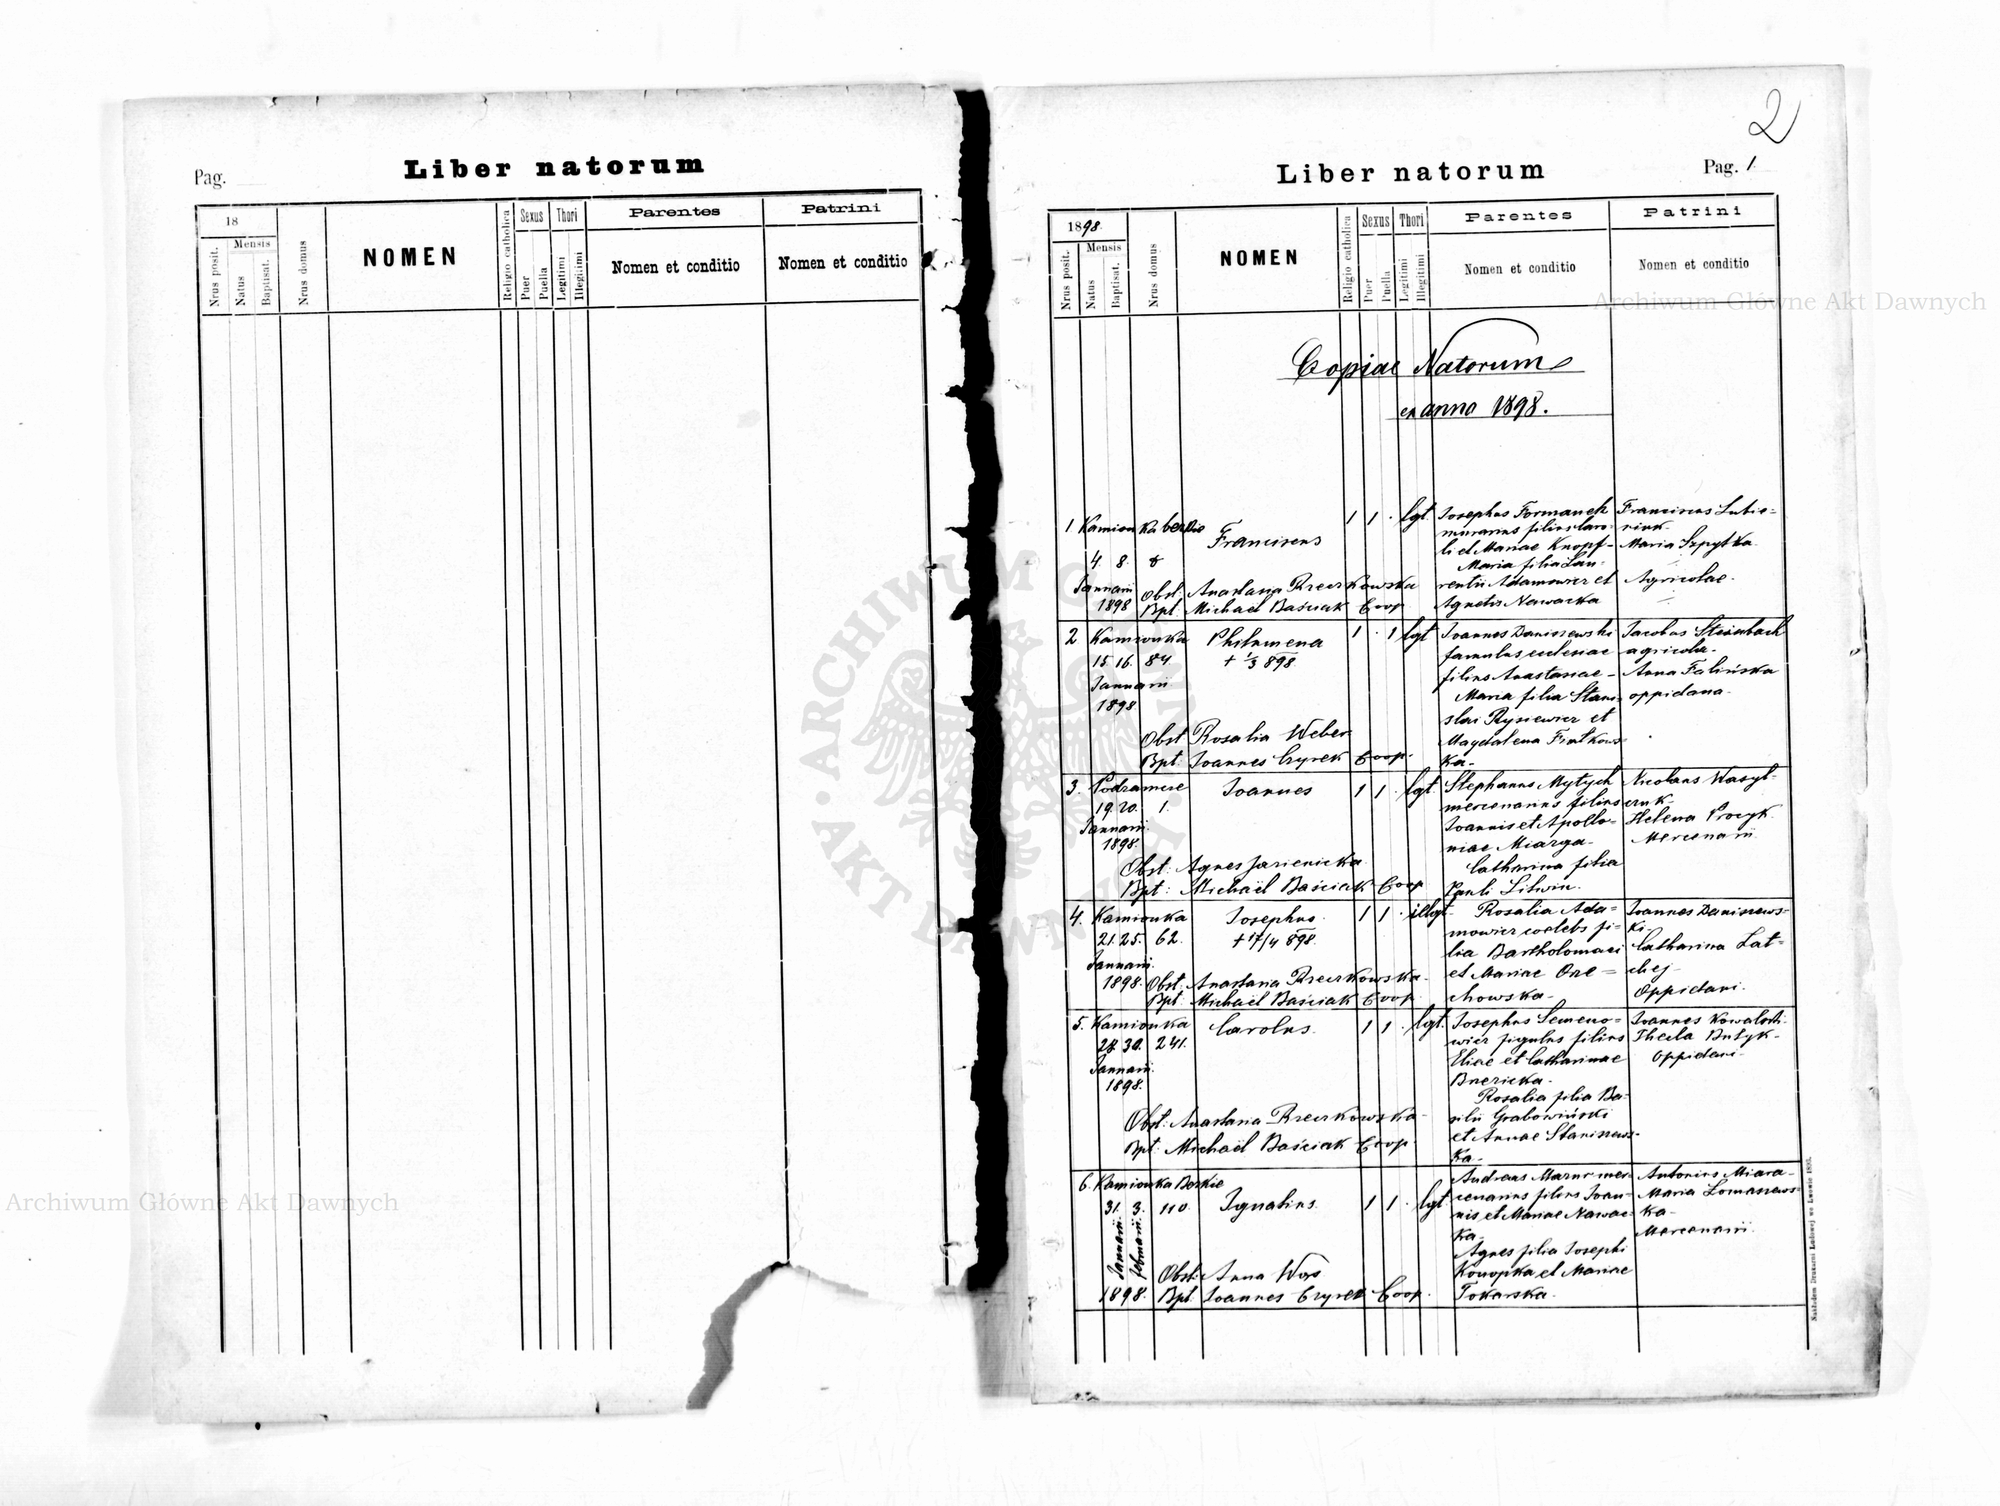 Pag.
Liber natorum
18
Mensis
Nrus posit.
Natus
Baptisat.
Nrus domus
NOMEN
Religio catholica
Sexus
Puer
Puella
Thori
Legitimi
Illegitimi
Parentes
Nomen et conditio
Patrini
Nomen et conditio
2
Liber natorum
Pag. 1
1898.
Mensis
Nrus posit.
Natus
Baptisat.
Nrus domus
NOMEN
Religio catholica
Sexus
Puer
Puella
Thori
Legitimi
Illegitimi
Parentes
Nomen et conditio
Patrini
Nomen et conditio
Copiae Natorum
ex anno 1898.
1 Kamionka
4. 8.
Januarii
1898
Franciscus
1 1 . lgt.
Obst. Anastasia
Bpt: Michael Baściak Coop.
Josephus Formanek
murarius filius Caro-
li et Mariae Knopf-
Maria filia Lau-
rentii Adamowicz et
Agnetis Nawacka
Franciscus
Maria Szpytka
Agricolae.
2. Kamionka
15. 16. 84.
Januarii
1898.
Philomena
1 . 1 lgt
Obst Rosalia Weber.
Bpt: Joannes Czyrek Coop.
Joannes Daniszewski
famulus ecclesiae
filius Anastasiae -
Maria filia Stani-
slai Rysiewicz et
Magdalena
ka-
Jacobus
agricola-
Anna Falińska
oppidana.
3. Podzamcze
19. 20. 1.
Januarii.
1898.
Joannes
1 1 . lgt.
Obst: Agnes
Bpt: Michaël Baściak Coop
Stephanus Mytych
mercenarius filius
Joannis et Apollo-
niae Miarga-
Catharina filia
Pauli Litwin.
Nicolaus Wasyl-
czuk-
Helena Procyk.
Mercenarii
4. Kamionka
21. 25. 62.
Januarii.
1898.
Josephus.
+ 17/4 898.
1 1 . illegt.
Obst: Anastasia
Bpt: Michaël Baściak Coop.
Rosalia Ada-
mowicz coelebs fi-
lia Bartholomaei
et Mariae Orze-
chowska-
Joannes Daniszews-
ki-
Catharina Lat-
chej-
Oppidani.
5. Kamionka
28. 30. 241.
Januarii.
1898.
Carolus.
1 1 . lgt.
Obst: Anastasia
Bpt: Michaël Baściak Coop.
Josephus Semeno-
wicz figulus filius
Eliae et Catharinae
Rosalia filia Ba-
silii Grabowiński
et Annae Staniszews-
ka-
Joannes Kowalski.
Thecla Butyk-
Oppidani-
6. Kamionka
31. 3. 110.
Januarii. Februarii
1898.
Ignatius.
1 1 . lgt.
Obst: Anna Wąs
Bpt: Joannes Czyrek Coop.
Andreas Mazur mer-
cenarius filius Joan-
nis et Mariae Nawac-
ka-
Agnes filia Josephi
Konopka et Mariae
Tokarska.
Antonius Miara-
Maria Tomaszews-
ka-
Mercenarii.
Nakładem Drukarni Ludowej we Lwowie
Archiwum Główne Akt Dawnych
Archiwum Główne Akt Dawnych